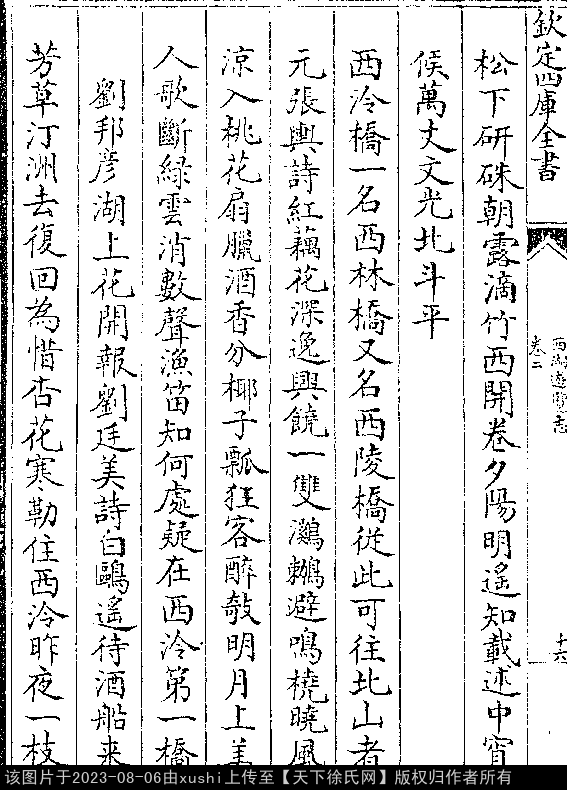 欽定四庫全書
西湖遊覽志
卷二
十六
松下研硃朝露滴竹西開卷夕陽明遙知載述中宵
候萬丈文光北斗平
西泠橋一名西林橋又名西陵橋從此可往北山者
元張輿詩紅藕花深逸興饒一雙鸂鶒避鳴橈曉風
涼入桃花扇臘酒香分椰子瓢狂客醉敧明月上美
人歌斷綠雲消數聲漁笛知何處疑在西泠第一橋
劉邦彥湖上花開報劉廷美詩白鷗遙待酒船來
芳草汀洲去復回為惜杏花寒勒住西泠昨夜一枝
该图片于2023-08-06由xushi上传至【天下徐氏网】版权归作者所有